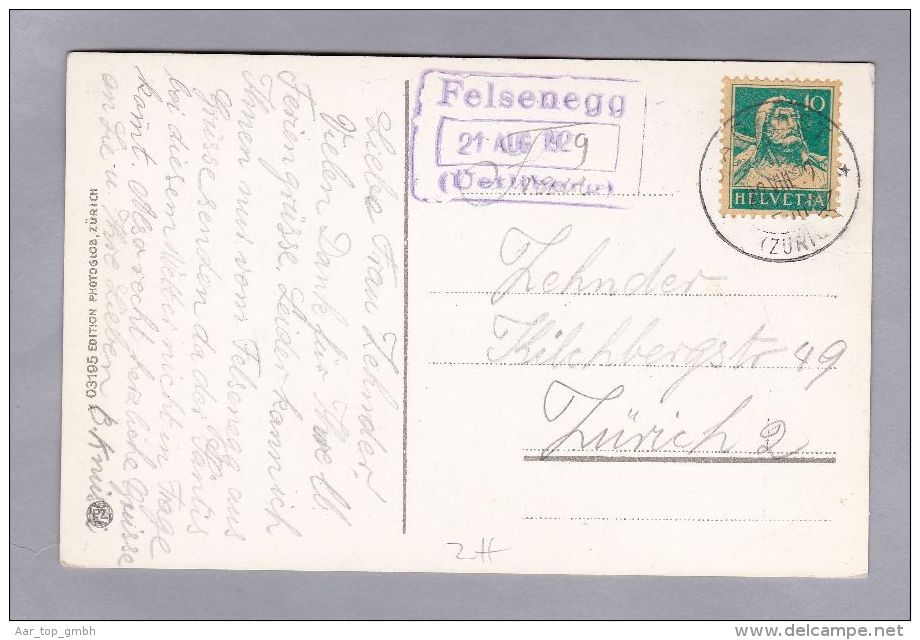 Liebe Frau Zehnder
Vielen Dank für Ihre ll.
Feriengrüsse. Leider kann ich
Ihnen nur vom Felsenegg aus
Grüsse senden da der Säntis
bei diesem Wetter nicht in Frage
kommt. Also recht herzliche Grüsse
an Sie u Ihre Lieben
03195 EDITION PHOTOGLOB, ZÜRICH
Felsenegg
21 AUG 192 9
Frau
10
HELVETIA
(ZÜRIC
Zehnder
Kilchbergstr 49
Zürich 2
Aar_top_gmbh
www.delcampe.net